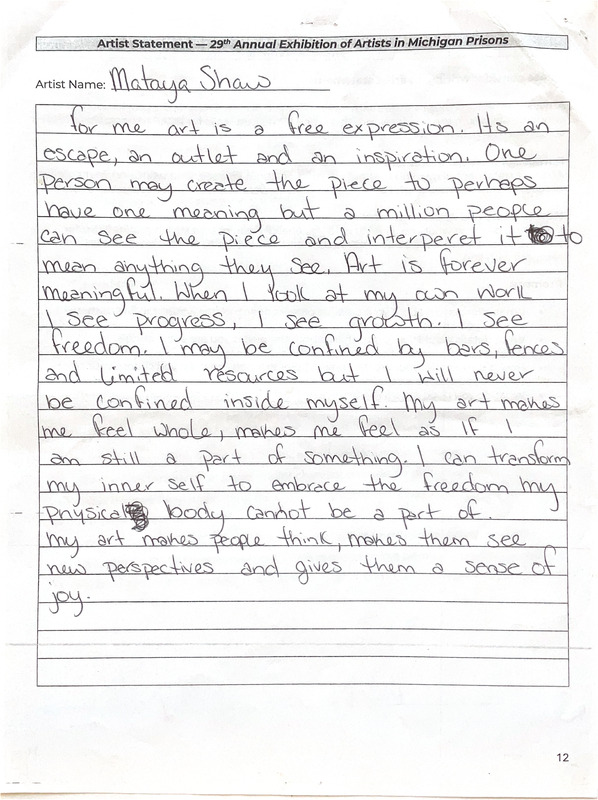 Artist Statement — 29th Annual Exhibition of Artists in Michigan Prisons
Artist Name: Mataya Shaw
For me art is a free expression. Its an
escape, an outlet and an inspiration. One
person may create the piece to perhaps
have one meaning but a million people
can see the piece and interperet it to
mean anything they see. Art is forever
meaningful. When I look at my own work
I see progress, I see growth. I see
freedom. I may be confined by bars, fences
and limited resources but I will never
be confined inside myself. My art makes
me feel whole, makes me feel as if I
am still a part of something. I can transform
my inner self to embrace the freedom my
physical body cannot be a part of.
My art makes people think, makes them see
new perspectives and gives them a sense of
joy.
12